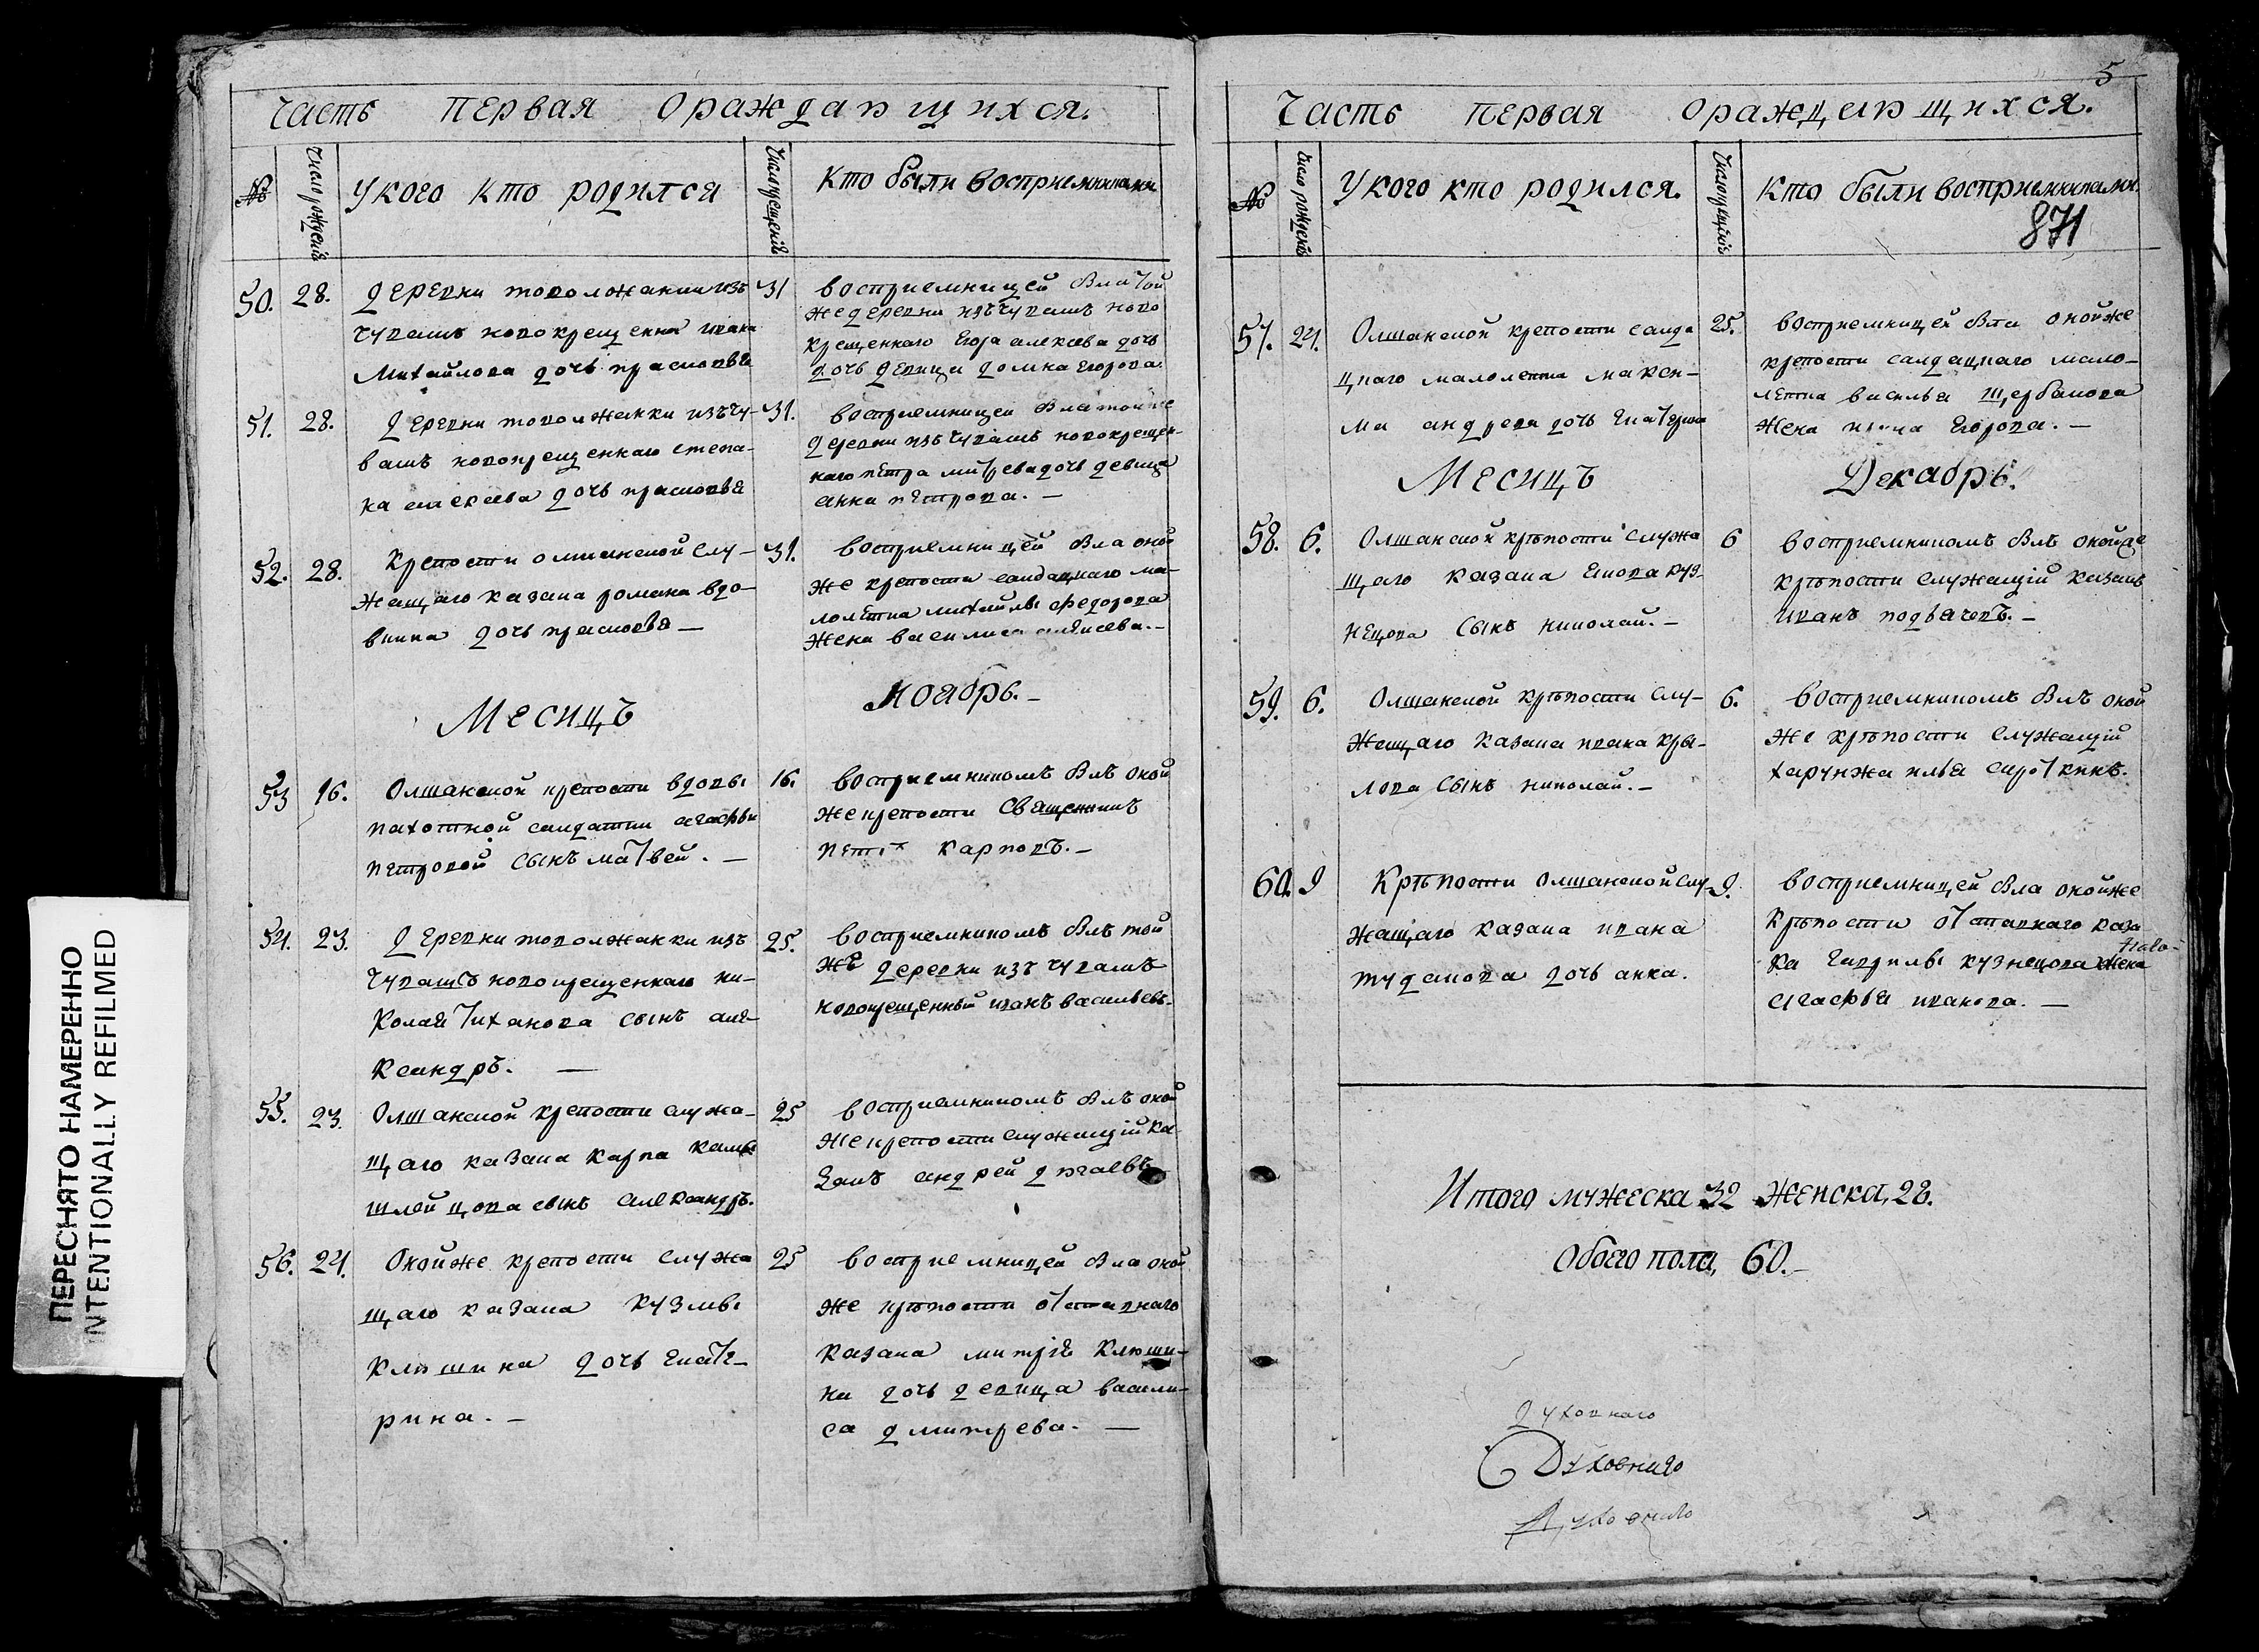 Часть первая ораждающихся.
№
Число рождениѣ
У кого кто родился
Число крещениѣ
Кто были восприемниками
50. 28.
деревни
чувашъ новокрещенна ивана
Михайлова дочь прасковья
31
восприемницей была той
же деревни изъ чувашъ ново
крещеннаго Егора алексева дочь
дочь девица домна Егорова.
51. 28.
деревни изъ чу-
вашъ новокрещеннаго степа-
на алексеева дочь прасковья
31.
восприемницей была той же
деревни изъ чувашъ новокрещен-
наго петра дочь девица
анна петрова. —
52. 28.
Крепости олшанской слу-
жащаго казака романа вдо-
вкина дочь прасковья —
31.
восприемницей была оной
же крепости салдацкаго ма-
лолетка михайлы федорова
жена василиса —
Месицъ
ноябрь. —
53 16.
Олшанской крепости вдовы
пахотной салдатки агафьи
петровой сынъ матвей. —
16.
восприемникомъ былъ оной
же крепости священникъ
петръ карповъ. —
54. 23.
деревни изъ
чувашъ новокрещеннаго ни-
колая тиханова сынъ але-
ксандръ. —
25.
восприемникомъ былъ той
же деревни изъ чувашъ
новокрещенный иванъ васильевъ.
55. 23.
Олшанской крепости служа-
щаго казака карпа камы
шлейцова сынъ александръ.
25
восприемникомъ былъ оной
же крепости служащiй ка-
закъ андрей
56. 24.
Оной же крепости служа
щаго казака кузмы
клюшина дочь екате-
рина. —
25
восприемницей была оной
же крѣпости отставнаго
казака митрiя клюши-
на дочь девица васили-
са дмитрева. —
5
Часть первая ораждающихся.
№
Число рожденiѣ
У кого кто родился.
Число крещенiѣ
Кто были восприемниками.
871
57. 24.
Олшанской крепости салда
цкаго малолетка макси-
ма андреева дочь екатерина
25.
восприемницей была оной же
крепости салдацкаго мало-
летка василья щербакова
жена Егорова. —
Месицъ
Декабрь.
58. 6.
Олшанской крѣпости служа
щаго казака якова куз-
нецова сынъ николай. —
6
восприемникомъ былъ оной же
крѣпости служащiй казакъ
иванъ подьячевъ. —
59. 6.
Олшанской крѣпости слу-
жащаго казака ивана кры-
лова сынъ николай. —
6.
восприемникомъ былъ оной
же крѣпости служащiй
харунжа илья сироткинъ.
60. 9
Крѣпости олшанской слу-
жащаго казака ивана
тудакова дочь анна.
9.
восприемницей была оной же
крѣпости отставнаго каза
ка гаврилы кузнецова жена
агафья иванова. —
Итого мужеска 32 женска, 28.
Обоего пола, 60. —
духовнаго
Духовнаго
Духовнаго
ПЕРЕСНЯТО НАМЕРЕННО
INTENTIONALLY REFILMED